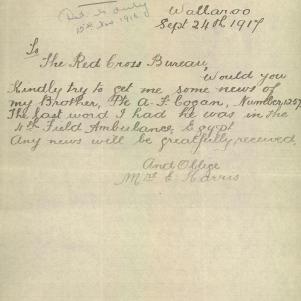 Wallaroo
Sept 24th 1917
To
The Red Cross Bureau,
Would you
Kindly try to get me some news of
my Brother, Pte A. F. Cogan, Number 1257
The last word I had he was in the
4th Field Ambulance, Egypt
Any news will be greatfully received
And Oblige
Mrs E. Harris